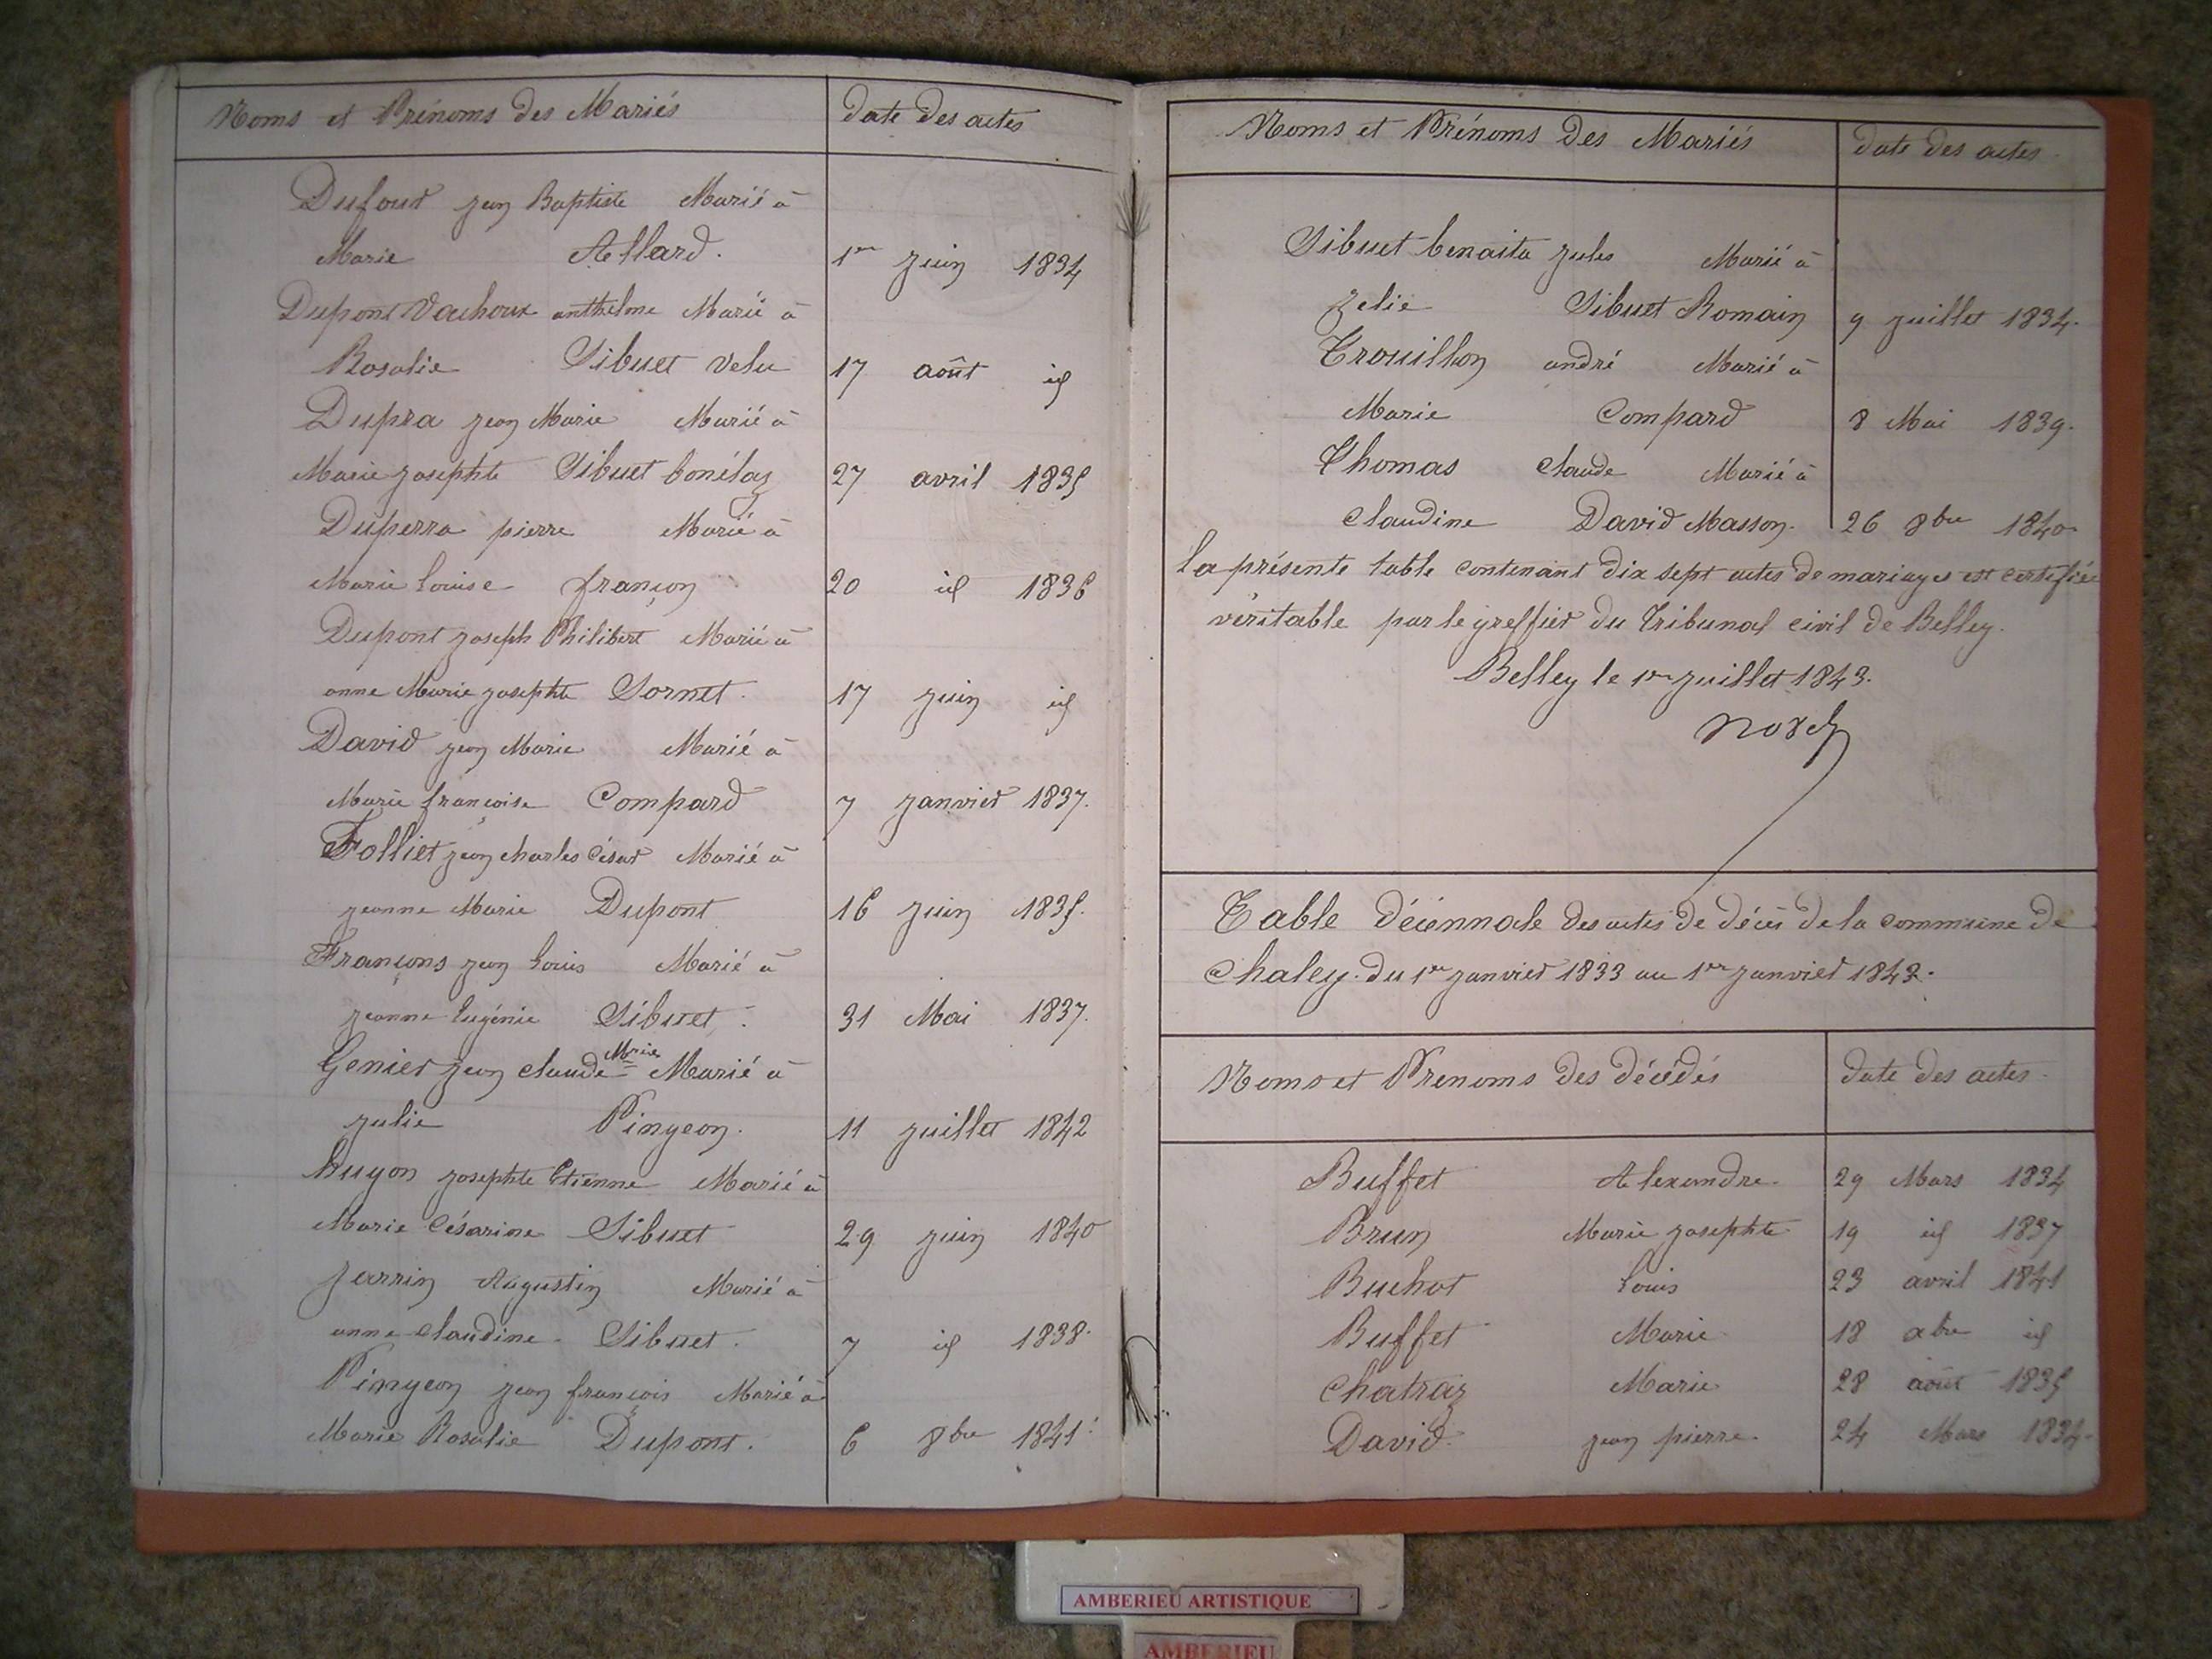 Noms et Prénoms des Mariés date des actes
Dufour jean Baptiste Marié à
Marie Allard. 1er juin 1834
Dupont Vachoux anthelme Marié à
Rosalie Sibuet Velu 17 août id
Dupra jean Marie Marié à
Marie josephte Sibuet bonélaz 27 avril 1835
Duperra pierre Marié à
Marie Louise françon 20 id 1836
Dupont joseph Philibert Marié à
anne Marie josephte Sornet. 17 juin id
David jean Marie Marié à
Marie françoise Compard 7 janvier 1837.
Folliet jean charles César Marié à
jeanne Marie Dupont 16 juin 1835.
Françons jean Louis Marié à
jeanne Eugénie Sibuet. 31 Mai 1837.
Genier jean claude Marie Marié à
julie Pingeon. 11 juillet 1842
huyon josephte Etienne Marié à
Marie Césarine Sibuet 29 juin 1840
jarrin Augustin Marié à
anne claudine Sibuet. 7 id 1838.
Pingeon jean françois Marié à
Marie Rosalie Dupont. 6 8bre 1841.
Noms et Prénoms des Mariés date des actes.
Sibuet benaita jules Marié à
zelie Sibuet Romain 9 juillet 1834.
Trouillon andré Marié à
Marie Compard 8 Mai 1839.
Thomas claude Marié à
claudine David Masson. 26 8bre 1840.
La présente table contenant dix sept actes de mariages est certifiée
véritable par le greffier du Tribunal civil de Belley.
Belley le 1er juillet 1843.
Table décennale des actes de décès de la commune de
Chaley. du 1er janvier 1833 au 1er janvier 1843.
Noms et Prenoms des décédés date des actes
Buffet Alexandre. 29 Mars 1834
Brun Marie josephte 19 id 1837
Buchot Louis 23 avril 1841
Buffet Marie 18 xbre id
Chatraz Marie 28 août 1835
David jean pierre 24 Mars 1834.
AMBERIEU ARTISTIQUE
AMBERIEU